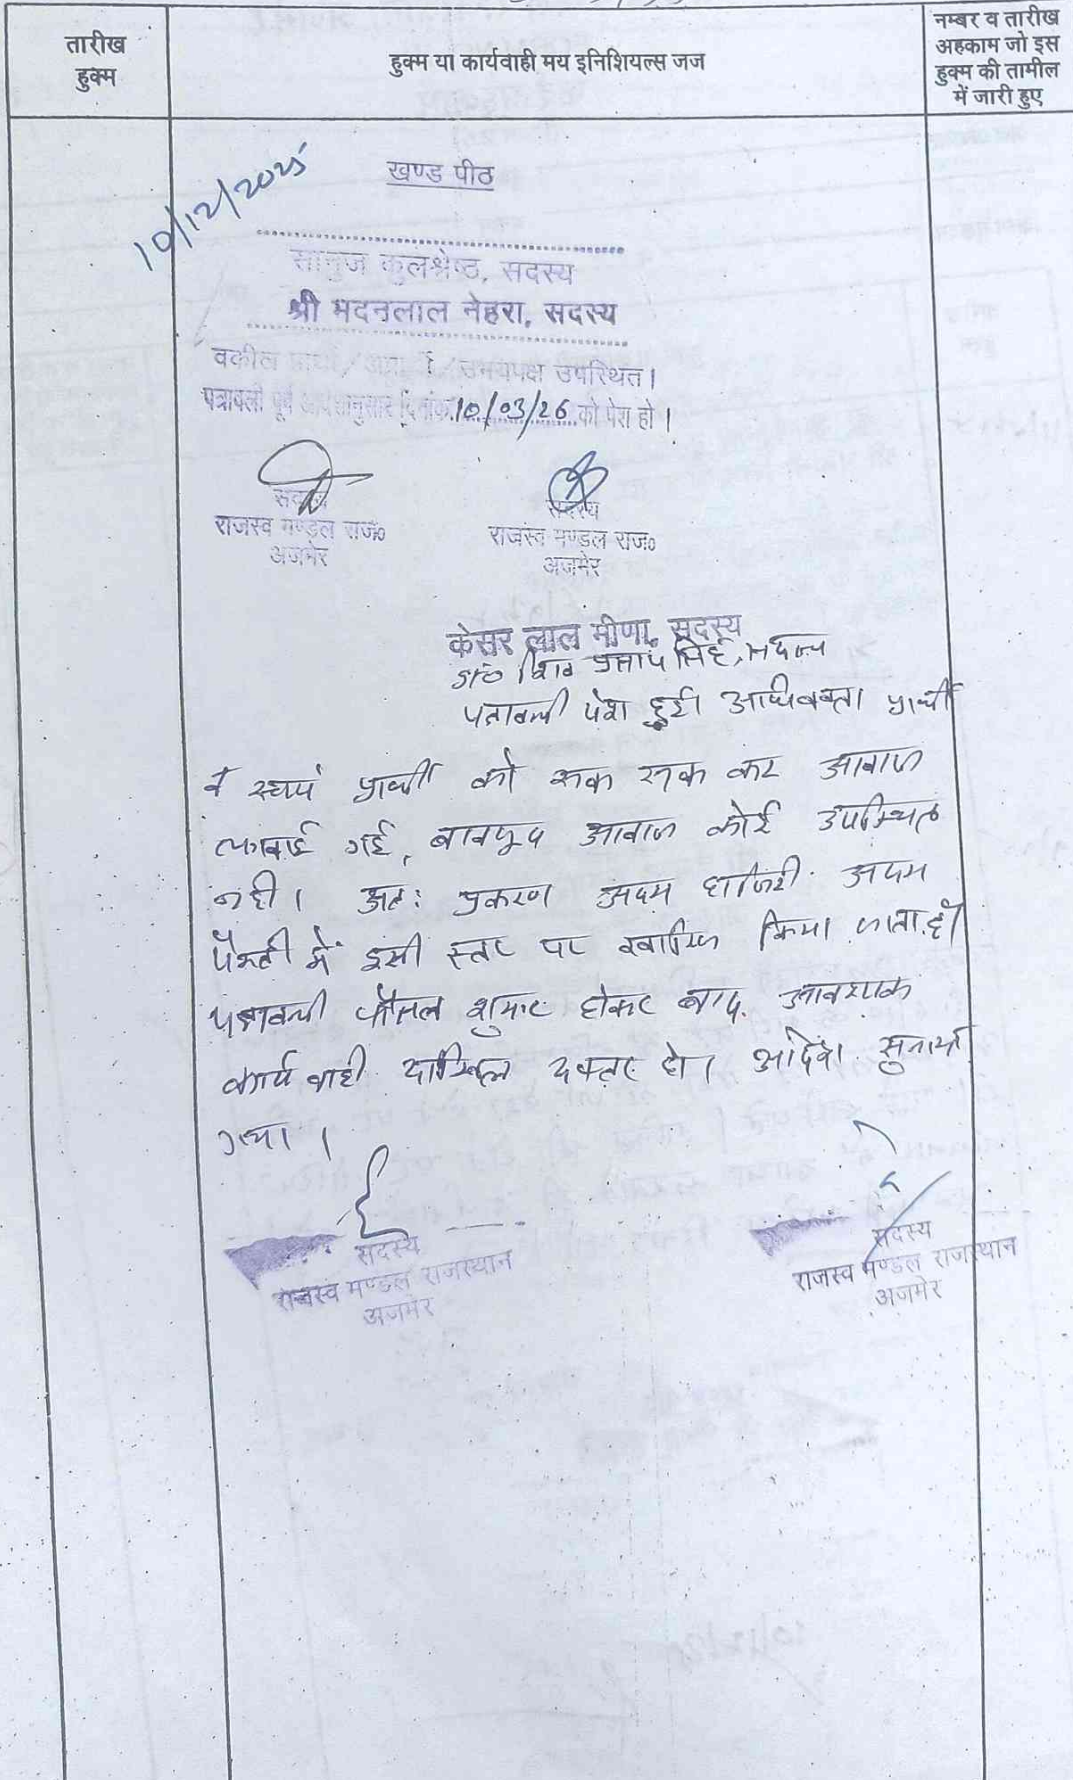 तारीख
हुक्म
हुक्म या कार्यवाही मय इनिशियल्स जज
नम्बर व तारीख
अहकाम जो इस
हुक्म की तामील
में जारी हुए
10/12/2025
खण्ड पीठ
सानुज कुलश्रेष्ठ, सदस्य
श्री मदनलाल नेहरा, सदस्य
वकील प्रार्थी/ उभयपक्ष उपस्थित।
पत्रावली पूर्व आदेशानुसार दिनांक 10/03/26 को पेश हो।
सदस्य
राजस्व मण्डल राज०
अजमेर
सदस्य
राजस्व मण्डल राज०
अजमेर
केसर लाल मीणा, सदस्य
सिंह, सदस्य
पत्रावली पेश हुई। अधिवक्ता प्रार्थी
व स्वयं प्रार्थी को रूक रूक कर आवाज
लगवाई गई, बावजूद आवाज कोई उपस्थित
नही। अतः प्रकरण अदम हाजिरी अदम
पैरवी में इसी स्तर पर खारिज किया जाता है।
पत्रावली फैसल शुमार होकर बाद आवश्यक
कार्यवाही दाखिल दफ्तर हो। आदेश सुनाया
गया।
सदस्य
राजस्व मण्डल राजस्थान
अजमेर
सदस्य
राजस्व मण्डल राजस्थान
अजमेर